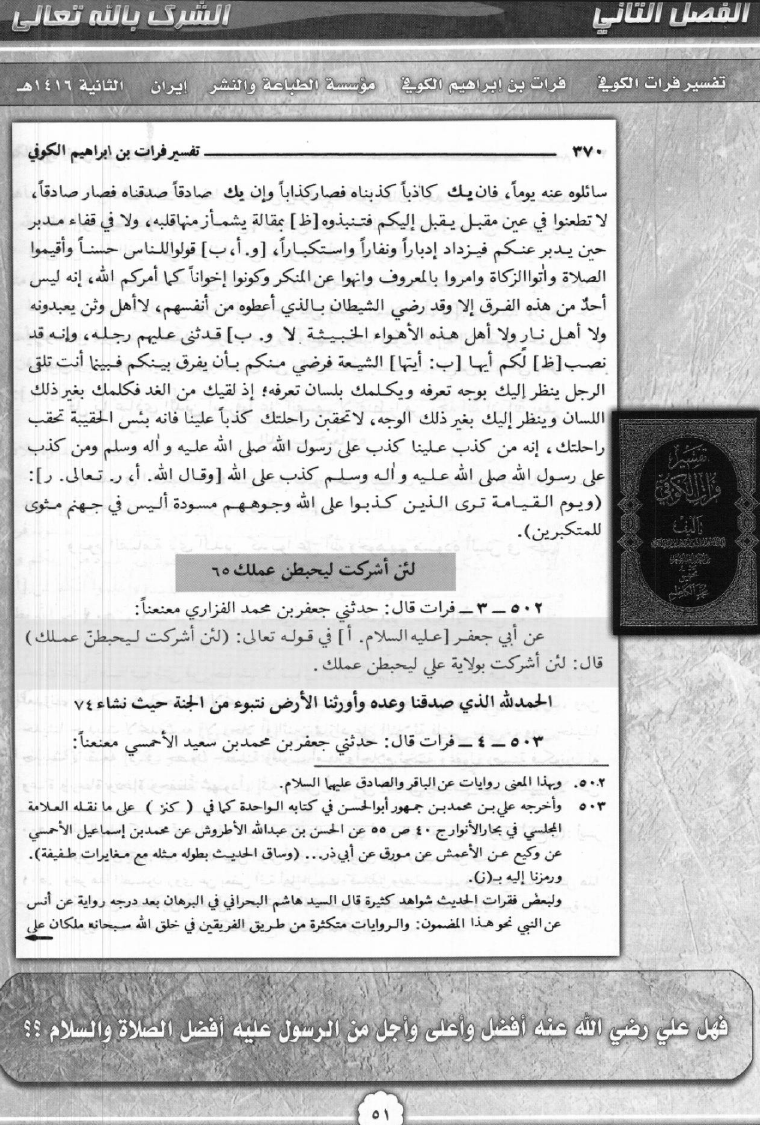 الفصل الثاني
الشرك بالله تعالى
تفسير فرات الكوفي     فرات بن إبراهيم الكوفي     مؤسسة الطباعة والنشر     إيران     الثانية ١٤١٦هـ
٣٧٠ ـــــ تفسير فرات بن ابراهيم الكوفي
سائلوه عنه يوماً، فان يك كاذباً كذبناه فصار كذاباً وإن يك صادقاً صدقناه فصار صادقاً،
لا تطعنوا في عين مقبل يقبل إليكم فتنبذوه [ظ] بمقالة يشمأز منها قلبه، ولا في قفاء مدبر
حين يدبر عنكم فيزداد إدباراً ونفاراً واستكباراً، [و. أ، ب] قولوا للناس حسناً وأقيموا
الصلاة وأتوا الزكاة وامروا بالمعروف وانهوا عن المنكر وكونوا إخواناً كما أمركم الله، إنه ليس
أحدٌ من هذه الفرق إلا وقد رضي الشيطان بالذي أعطوه من أنفسهم، لا أهل وثن يعبدونه
ولا أهل نار ولا أهل هذه الأهواء الخبيثة لا و. ب] قد ثنى عليهم رجله، وإنه قد
نصب [ظ] لكم أيها [ب: أيتها] الشيعة فرضي منكم بأن يفرق بينكم فبينما أنت تلقى
الرجل ينظر إليك بوجه تعرفه ويكلمك بلسان تعرفه؛ إذ لقيك من الغد فكلمك بغير ذلك
اللسان وينظر إليك بغير ذلك الوجه، لا تحقبن راحلتك كذباً علينا فانه بئس الحقيبة تحقب
راحلتك، إنه من كذب علينا كذب على رسول الله صلى الله عليه و اله وسلم ومن كذب
على رسول الله صلى الله عليه و اله وسلم كذب على الله [وقال الله. أ، ر. تعالى. ر]:
(ويوم القيامة ترى الذين كذبوا على الله وجوههم مسودة أليس في جهنم مثوى
للمتكبرين).
لئن أشركت ليحبطن عملك ٦٥
٥٠٢ ــ ٣ ــ فرات قال: حدثني جعفر بن محمد الفزاري معنعناً:
عن أبي جعفر [عليه السلام. أ] في قوله تعالى: (لئن أشركت ليحبطنّ عملك)
قال: لئن أشركت بولاية علي ليحبطن عملك.
الحمد لله الذي صدقنا وعده وأورثنا الأرض نتبوء من الجنة حيث نشاء ٧٤
٥٠٣ ــ ٤ ــ فرات قال: حدثني جعفر بن محمد بن سعيد الأحمسي معنعناً:
٥٠٢. وبهذا المعنى روايات عن الباقر والصادق عليهما السلام.
٥٠٣ وأخرجه علي بن محمد بن جمهور أبو الحسن في كتابه الواحدة كما في ( كنز ) على ما نقله العلامة
المجلسي في بحار الأنوار ج ٤٠ ص ٥٥ عن الحسن بن عبدالله الأطروش عن محمد بن إسماعيل الأحمسي
عن وكيع عن الأعمش عن مورق عن أبي ذر... (وساق الحديث بطوله مثله مع مغايرات طفيفة).
ورمزنا إليه بـ(ز).
ولبعض فقرات الحديث شواهد كثيرة قال السيد هاشم البحراني في البرهان بعد درجه رواية عن أنس
عن النبي نحو هذا المضمون: والروايات متكثرة من طريق الفريقين في خلق الله سبحانه ملكان على
تفسير
فرات الكوفي
فهل علي رضي الله عنه أفضل وأعلى وأجل من الرسول عليه أفضل الصلاة والسلام ؟؟
٥١